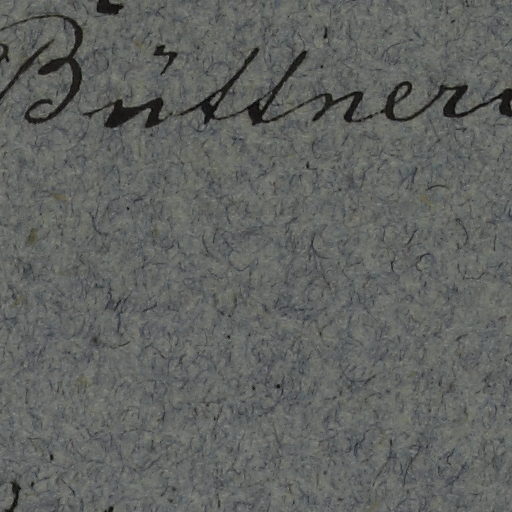 Büttner